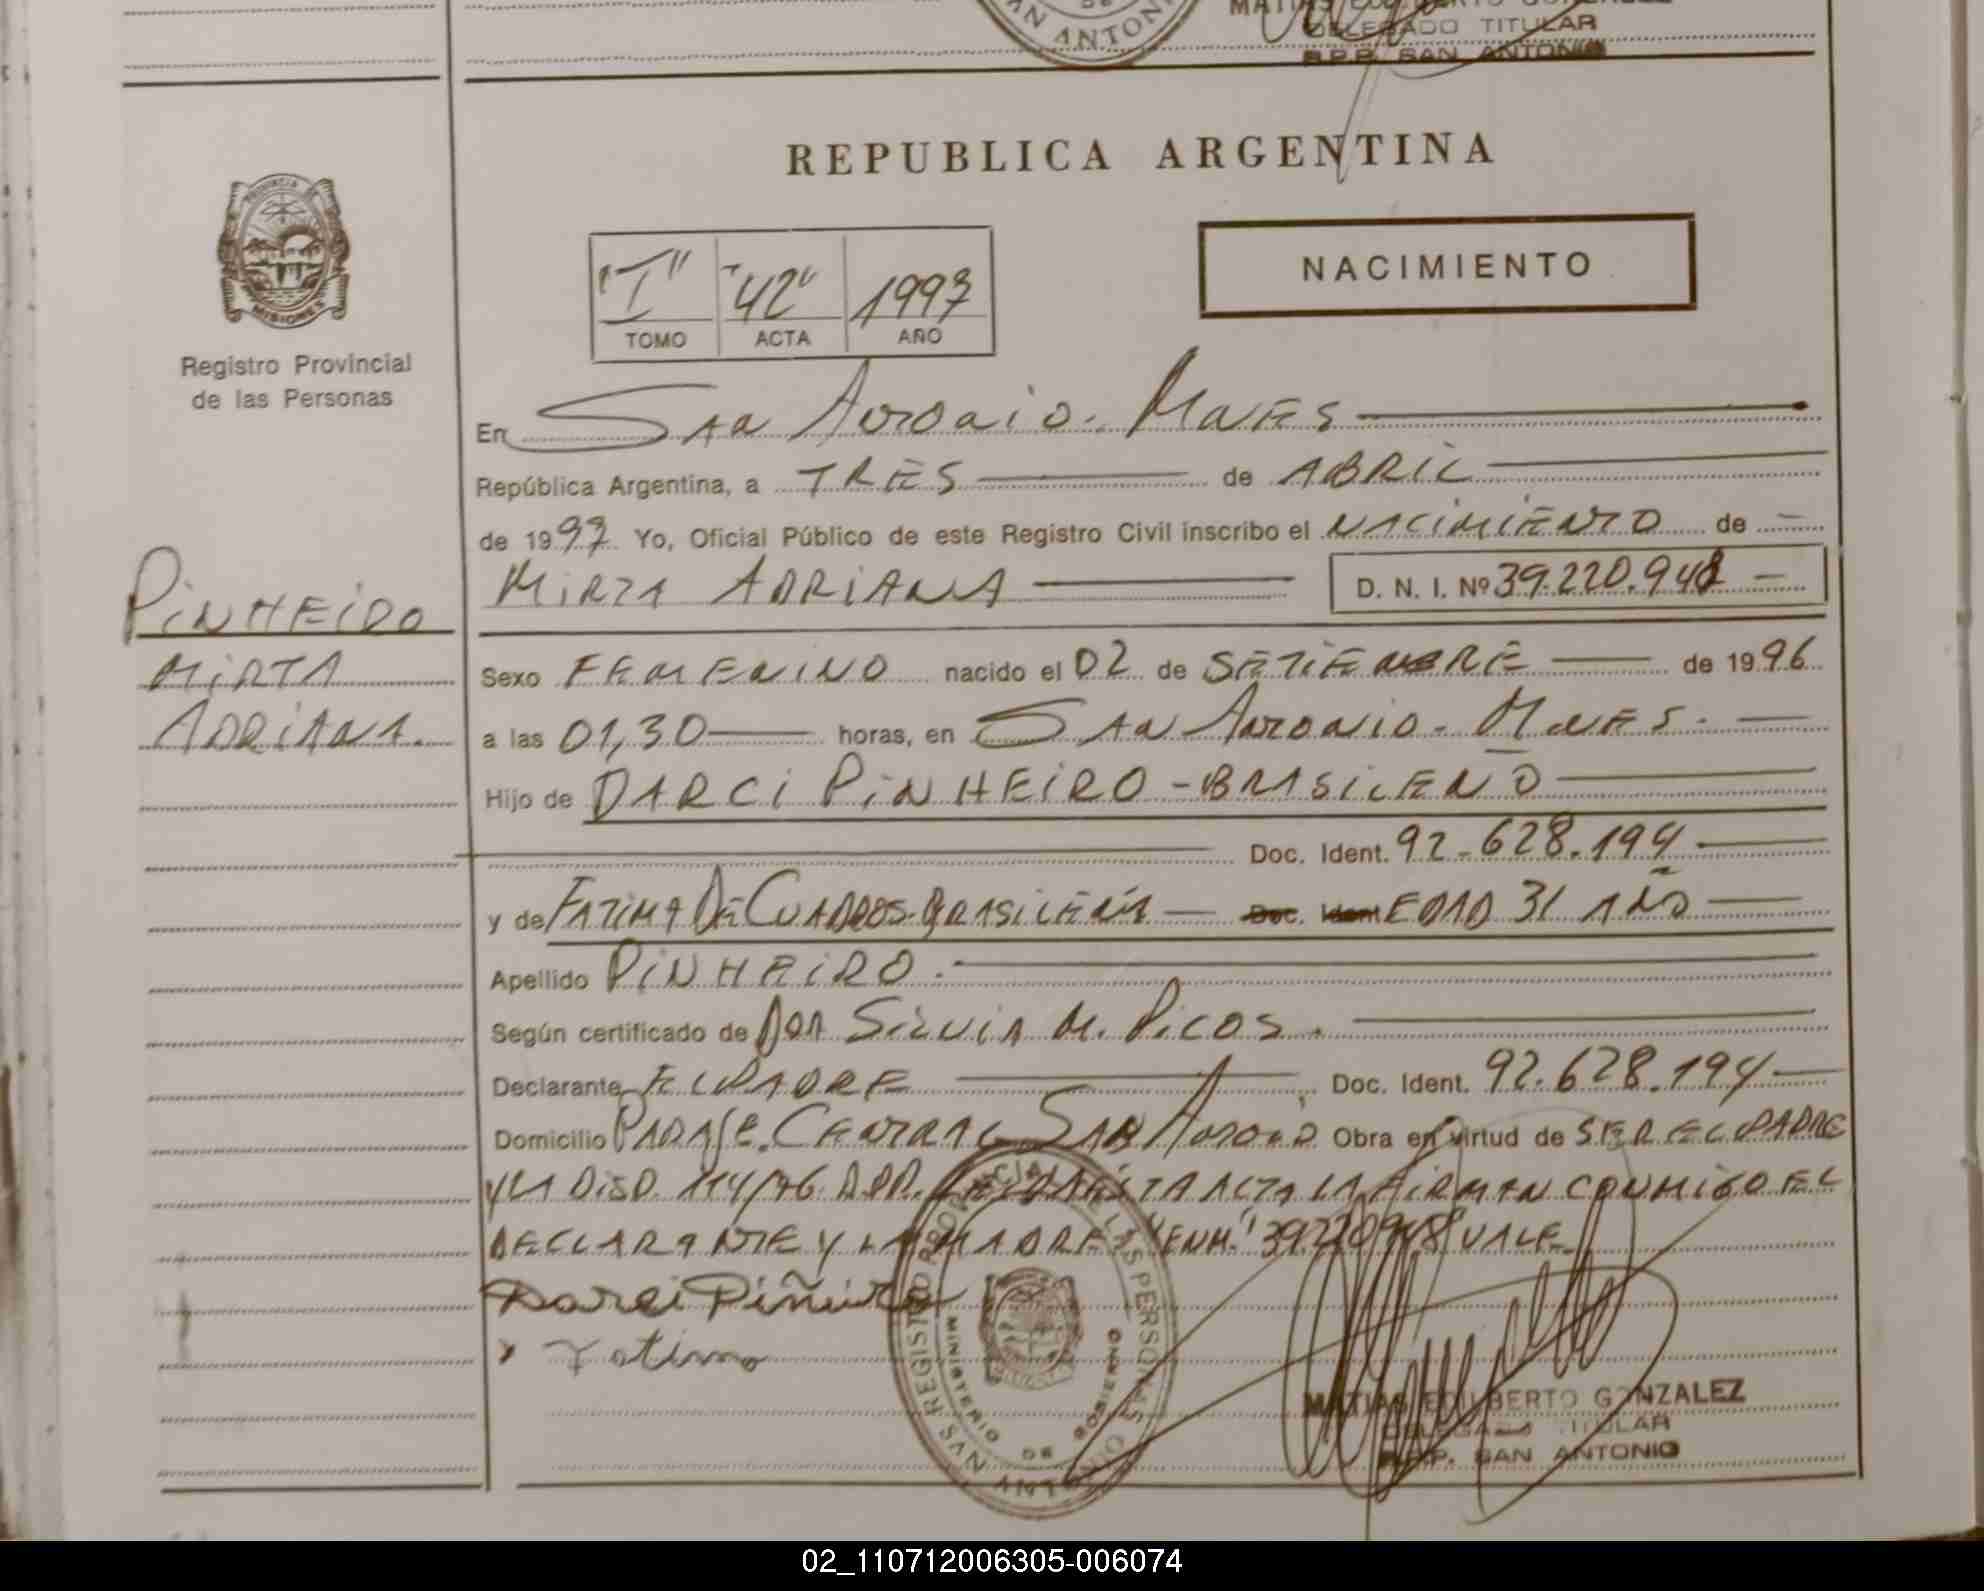 SAN ANTONIO
MATIAS EDILBERTO GONZALEZ
DELEGADO TITULAR
R.P.P. SAN ANTONIO
REPUBLICA ARGENTINA
PROVINCIA DE
MISIONES
Registro Provincial
de las Personas
"I" "42" 1997
TOMO ACTA AÑO
NACIMIENTO
En San Antonio - Mnes
República Argentina, a TRES de ABRIL
de 1997 Yo, Oficial Público de este Registro Civil inscribo el NACIMIENTO de
MIRTA ADRIANA D. N. I. Nº 39.220.948
PINHEIRO
MIRTA
ADRIANA.
Sexo FEMENINO nacido el 02 de SETIEMBRE de 1996
a las 01,30 horas, en San Antonio - Mnes.
Hijo de DARCI PINHEIRO - BRASILEÑO
Doc. Ident. 92.628.194
y de FATIMA DE CUADROS - BRASILEÑA Doc. Ident EDAD 31 AÑO
Apellido PINHEIRO.
Según certificado de DRA SILVIA M. PICOS.
Declarante EL PADRE Doc. Ident. 92.628.194
Domicilio PARAJE CENTRAL SAN ANTONIO Obra en virtud de SER EL PADRE
Y LA DISP. 114/96 R.P.P. LEIDA ESTA ACTA LA FIRMAN CONMIGO EL
DECLARANTE Y LA MADRE "ENM." 39220948 VALE
Darci Piñeiro
Fatima
REGISTRO PROVINCIAL DE LAS PERSONAS
MINISTERIO DE GOBIERNO
SAN ANTONIO
MATIAS EDILBERTO GONZALEZ
DELEGADO TITULAR
R.P.P. SAN ANTONIO
02_110712006305-006074